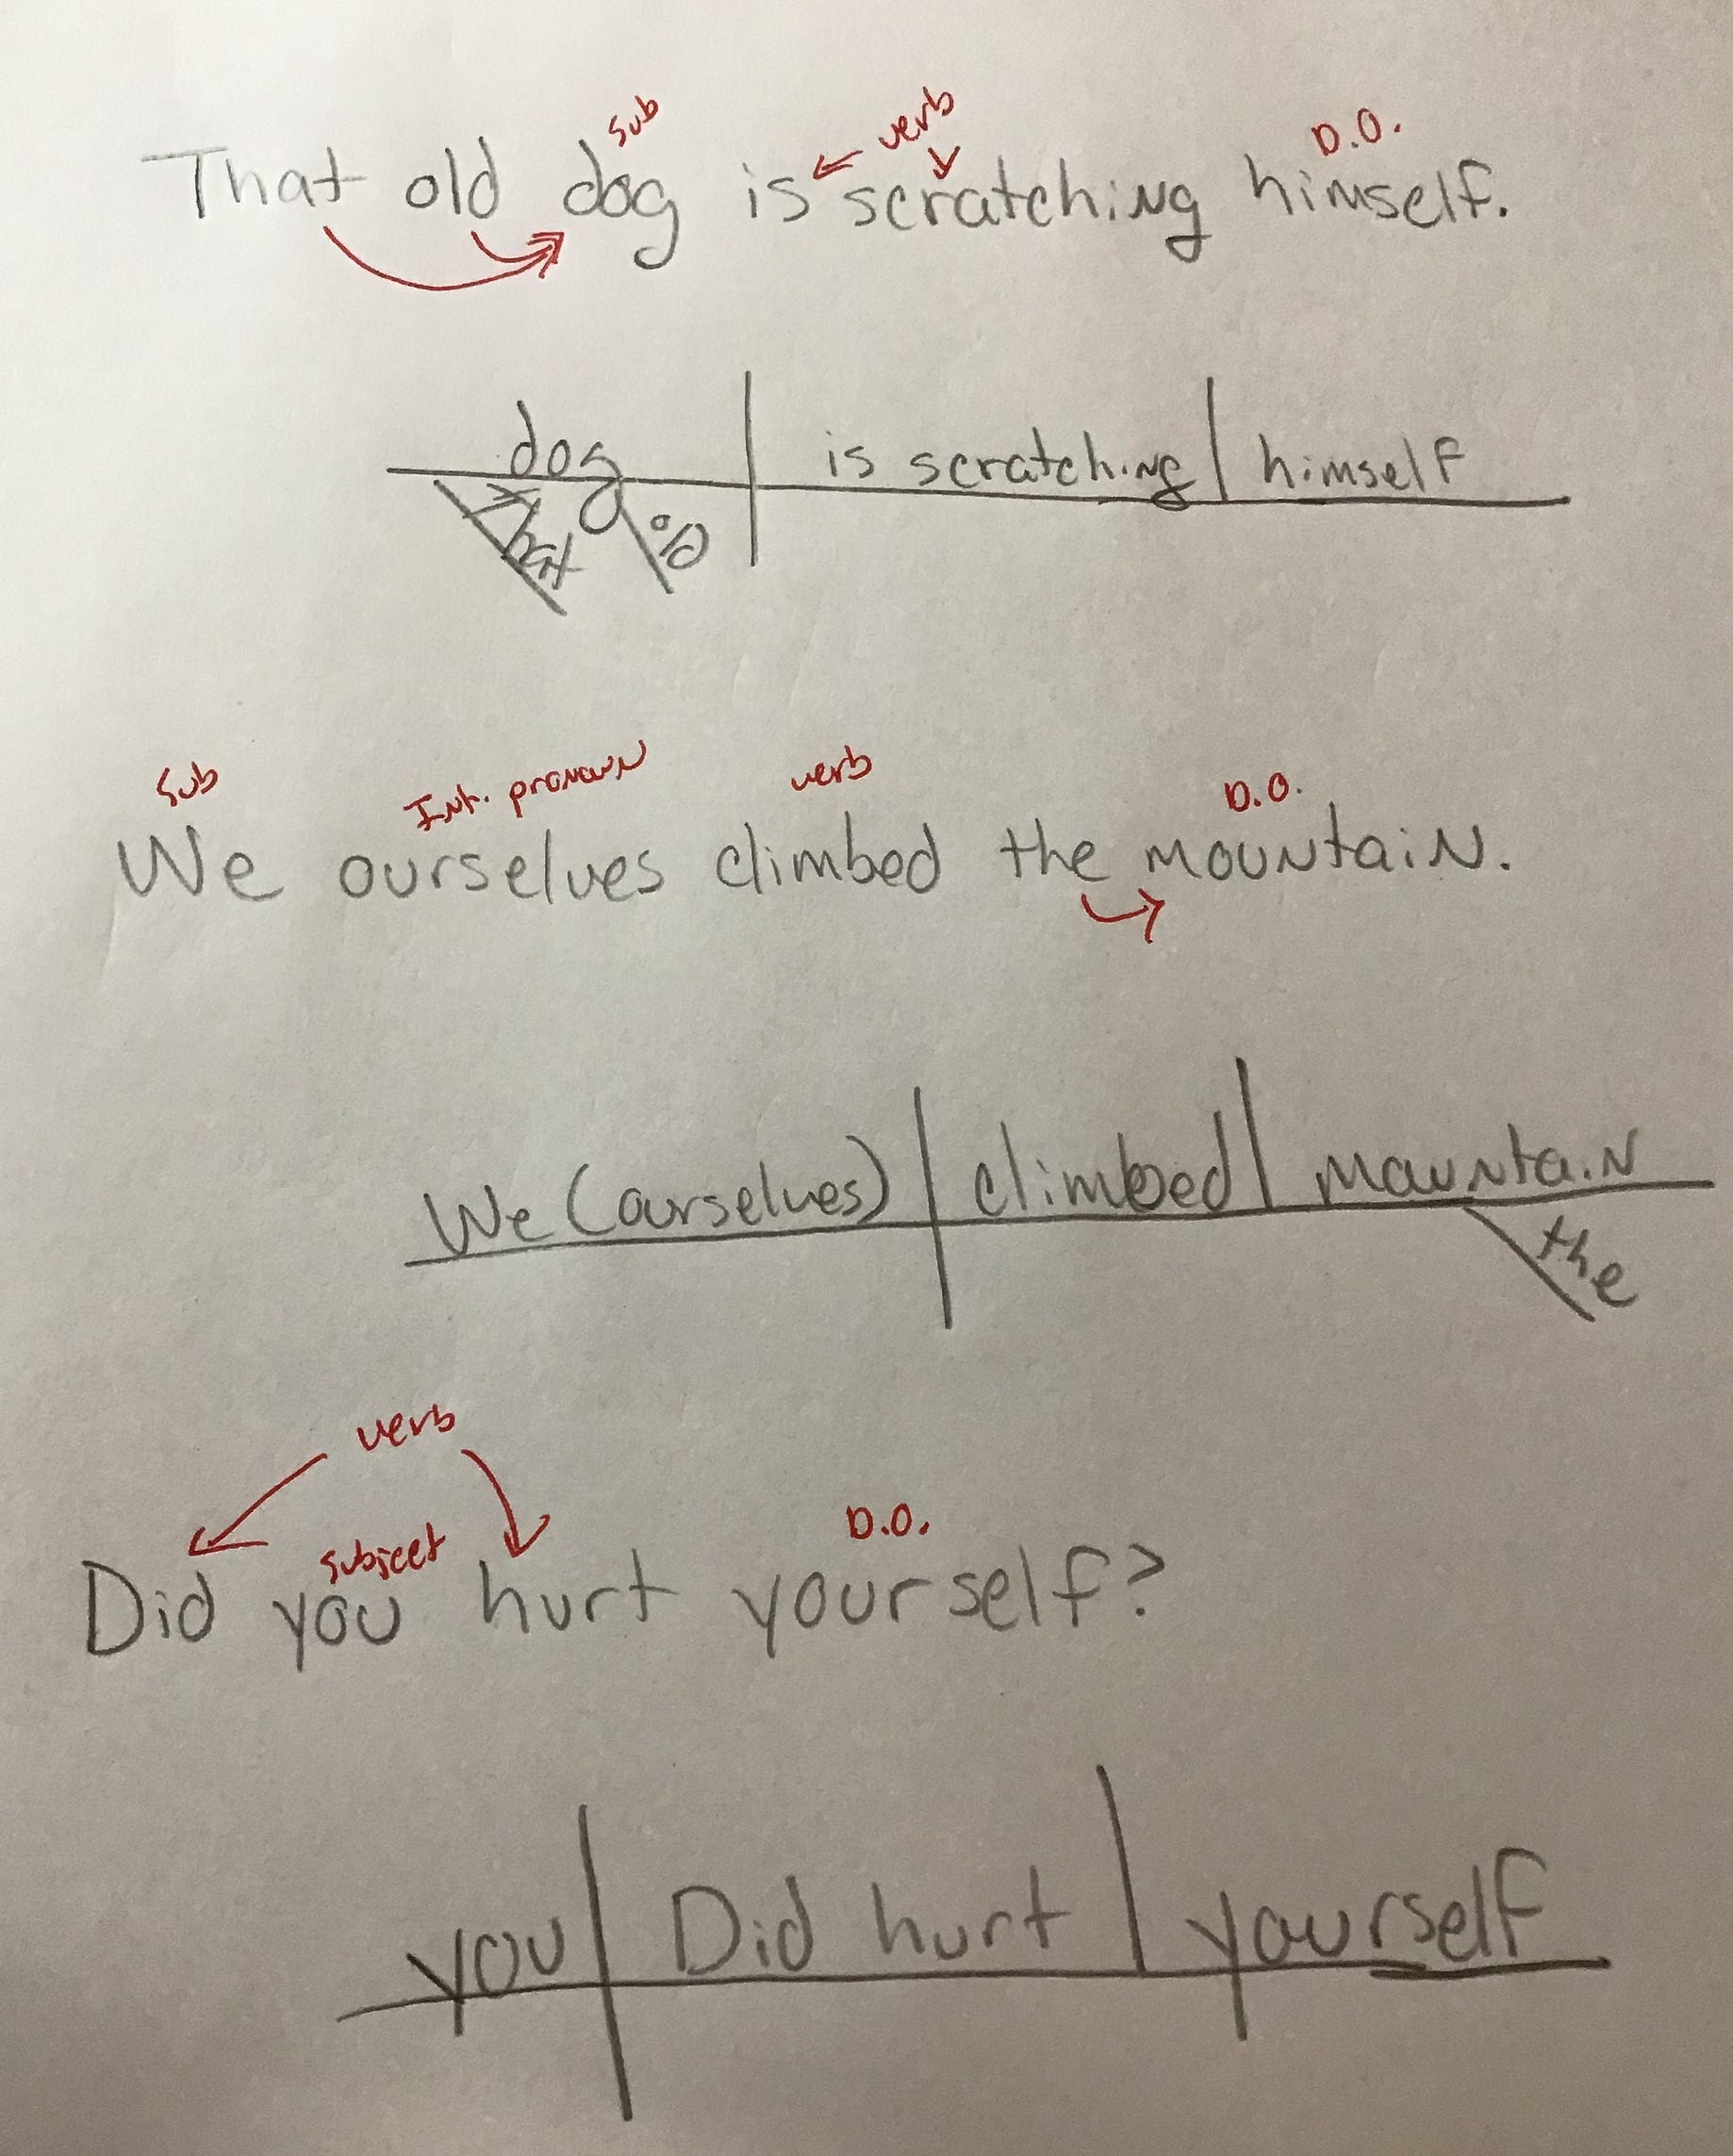 sub verb D.O.
That old dog is scratching himself.
dog is scratching himself
That old
Sub Int. pronoun verb D.O.
We ourselves climbed the mountain.
We (ourselves) climbed mountain
the
verb
subject D.O.
Did you hurt yourself?
you Did hurt yourself